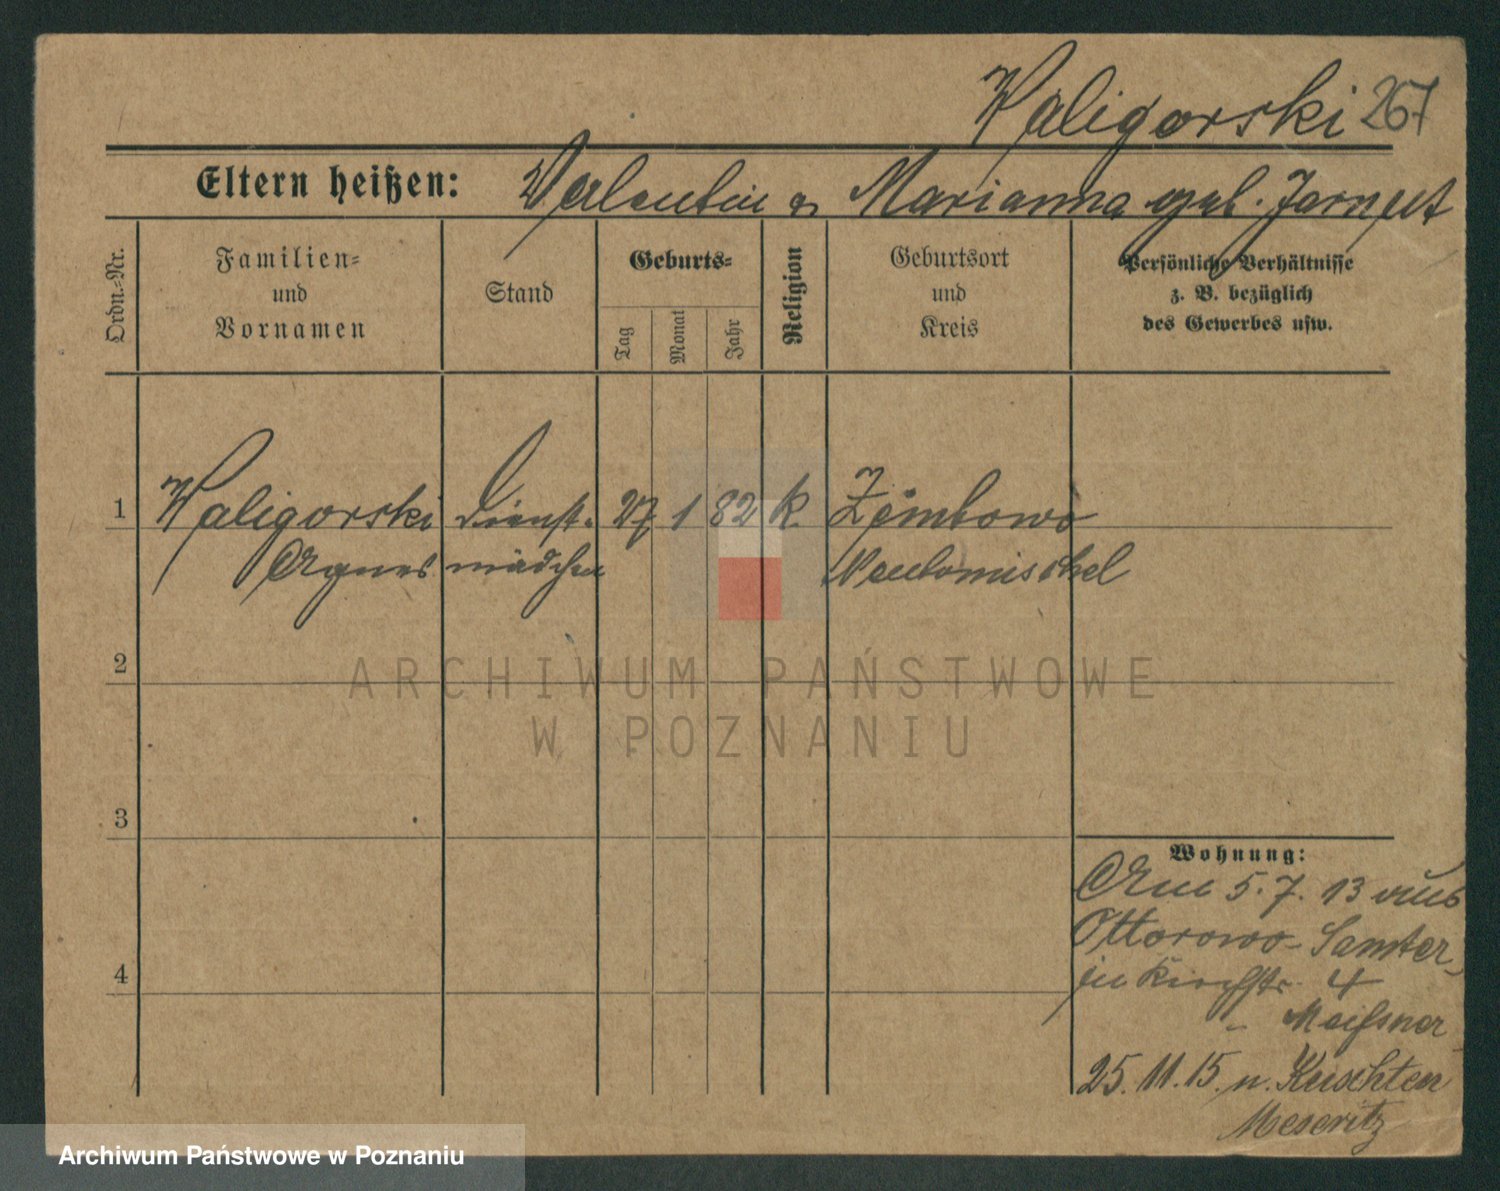 Waligorski 267
Eltern heißen: Valentin u Marianna geb.
Ordn.-Nr.
Familien- und Vornamen
Stand
Geburts-
Tag
Monat
Jahr
Religion
Geburtsort und Kreis
Persönliche Verhältnisse
z. B. bezüglich
des Gewerbes usw.
1 Waligorski Dienst- 27 1 82 k. Zembowo
Agnes mädchen Neutomischel
2
ARCHIWUM PAŃSTWOWE
W POZNANIU
3
Wohnung:
Am 5. 7. 13 aus
Ottorowo - Samter
in Kirchstr. 4
- Meißner
4
25. 11. 15. n. Kuschten
Meseritz
Archiwum Państwowe w Poznaniu